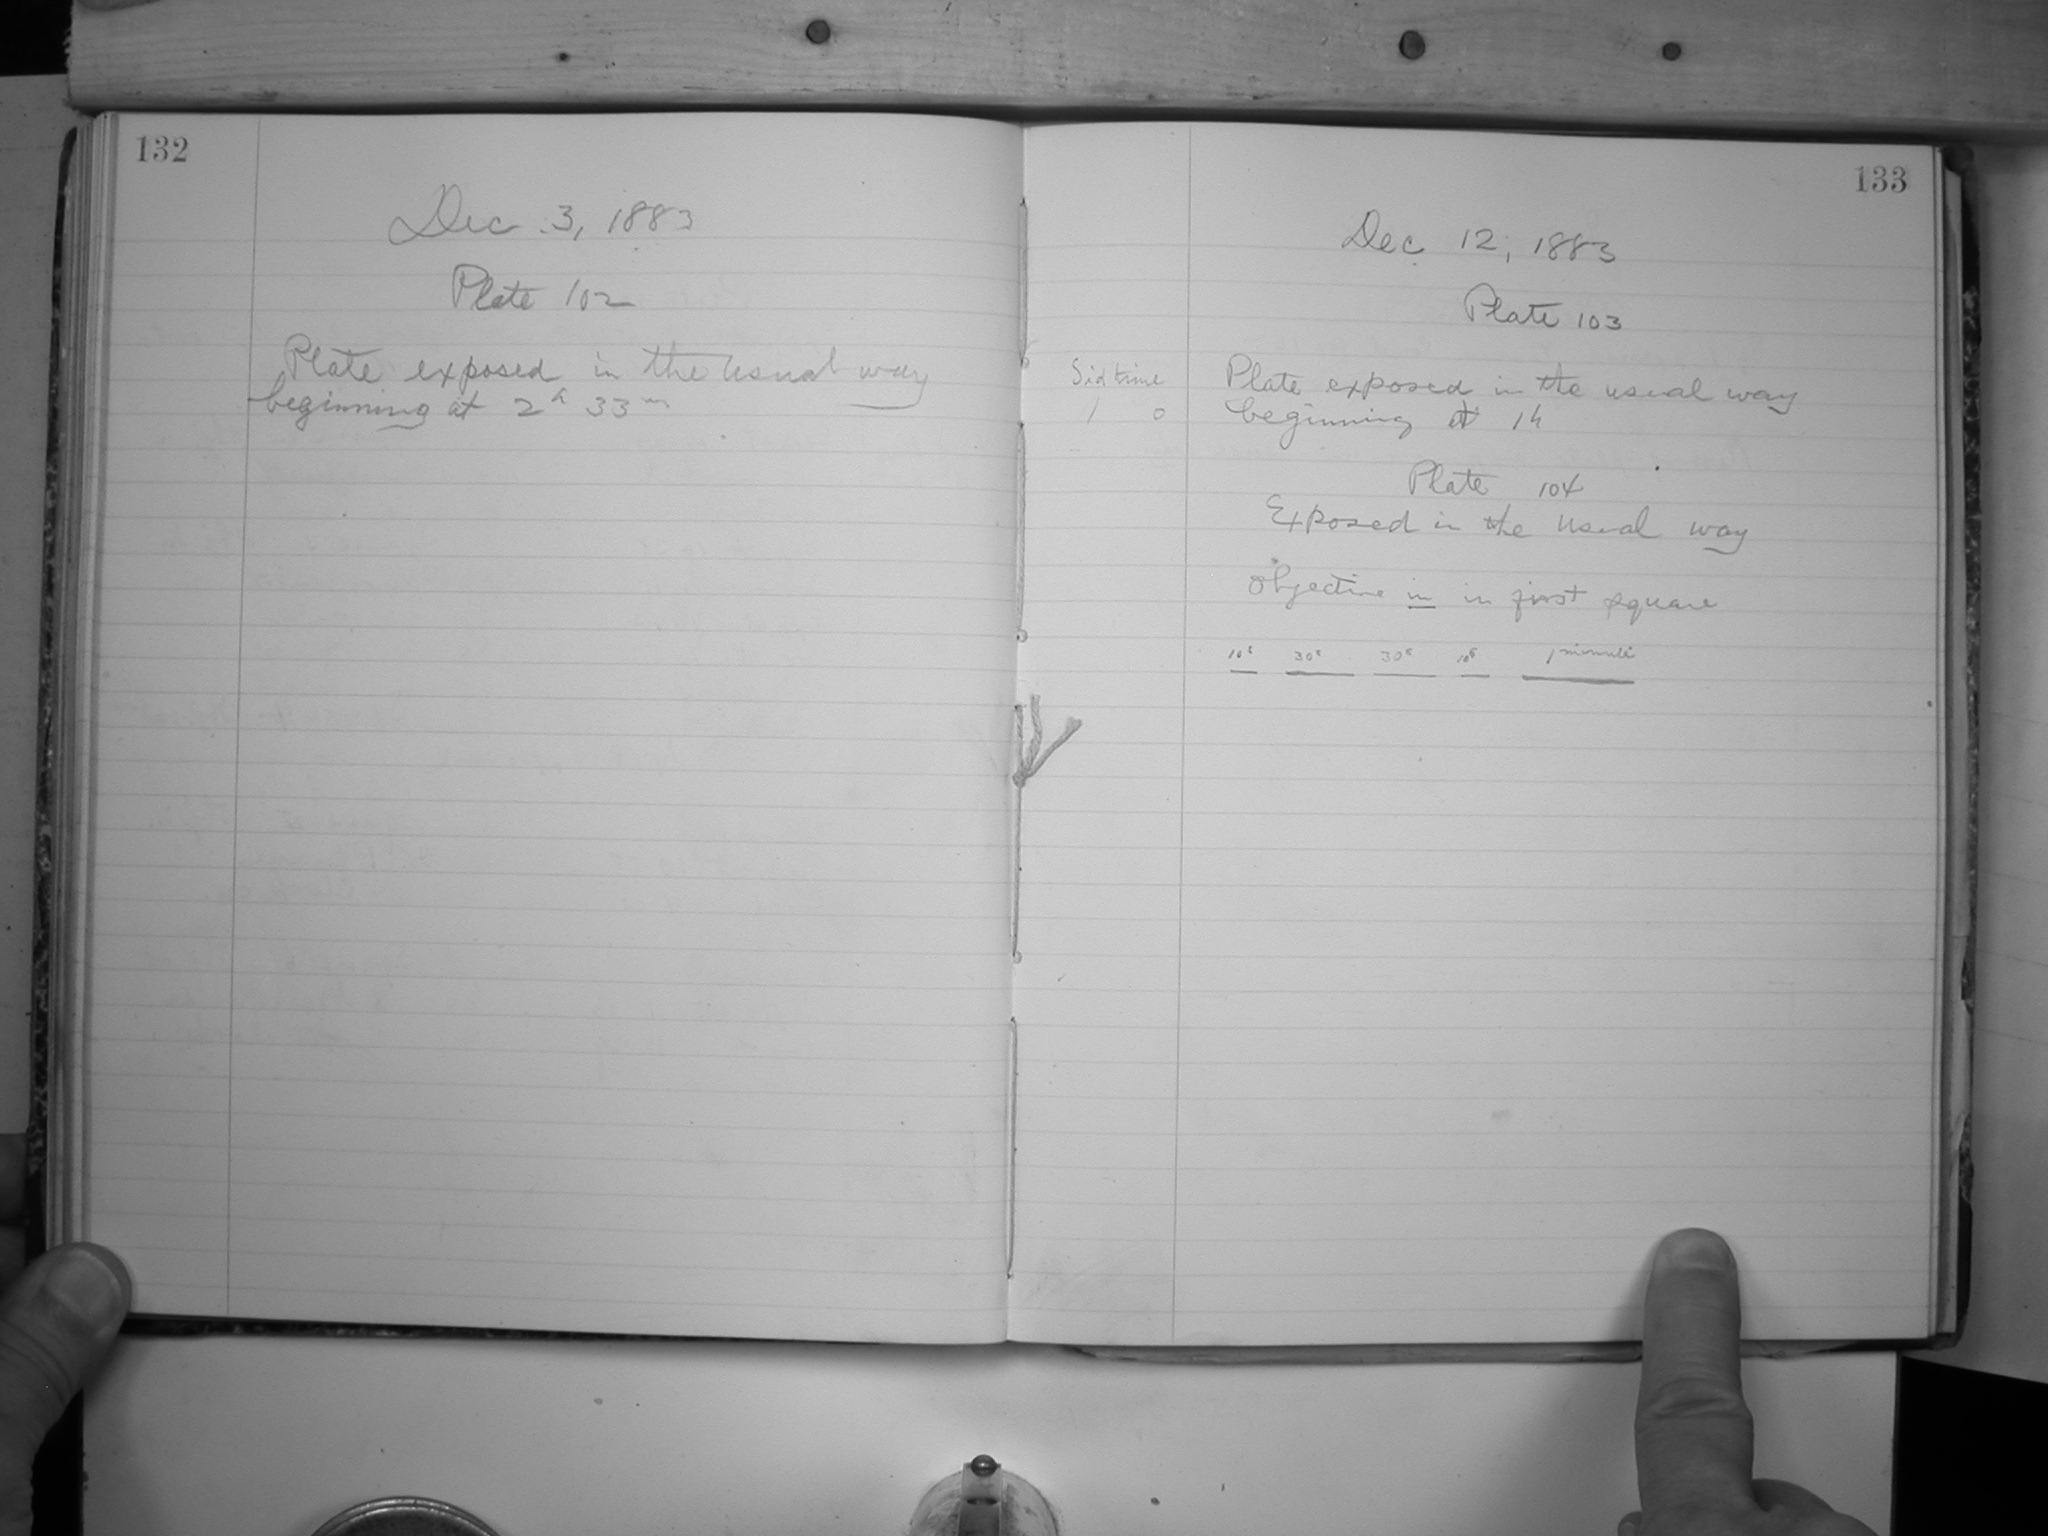 132
Dec 3, 1883
Plate 102
Plate exposed in the usual way
beginning at 2h 33m
133
Dec 12, 1883
Plate 103
Sid time
1 0
Plate exposed in the usual way
beginning at 1h
Plate 104
Exposed in the usual way
Objective in in first square
10s 30s 30s 10s 1 minute